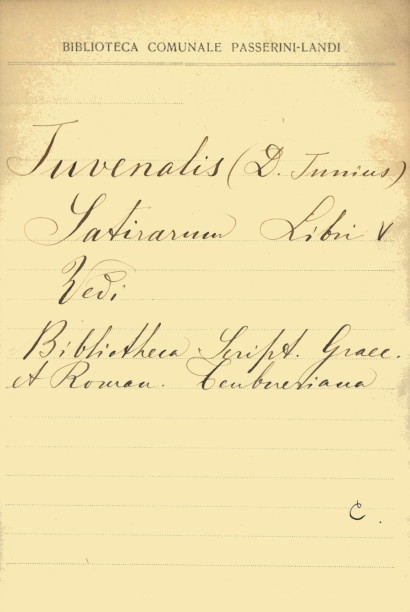 BIBLIOTECA COMUNALE PASSERINI-LANDI
Juvenalis (D. Junius)
Satirarum Libri V
Vedi
Bibliotheca Script. Graec.
et Roman. Teubneriana
C.